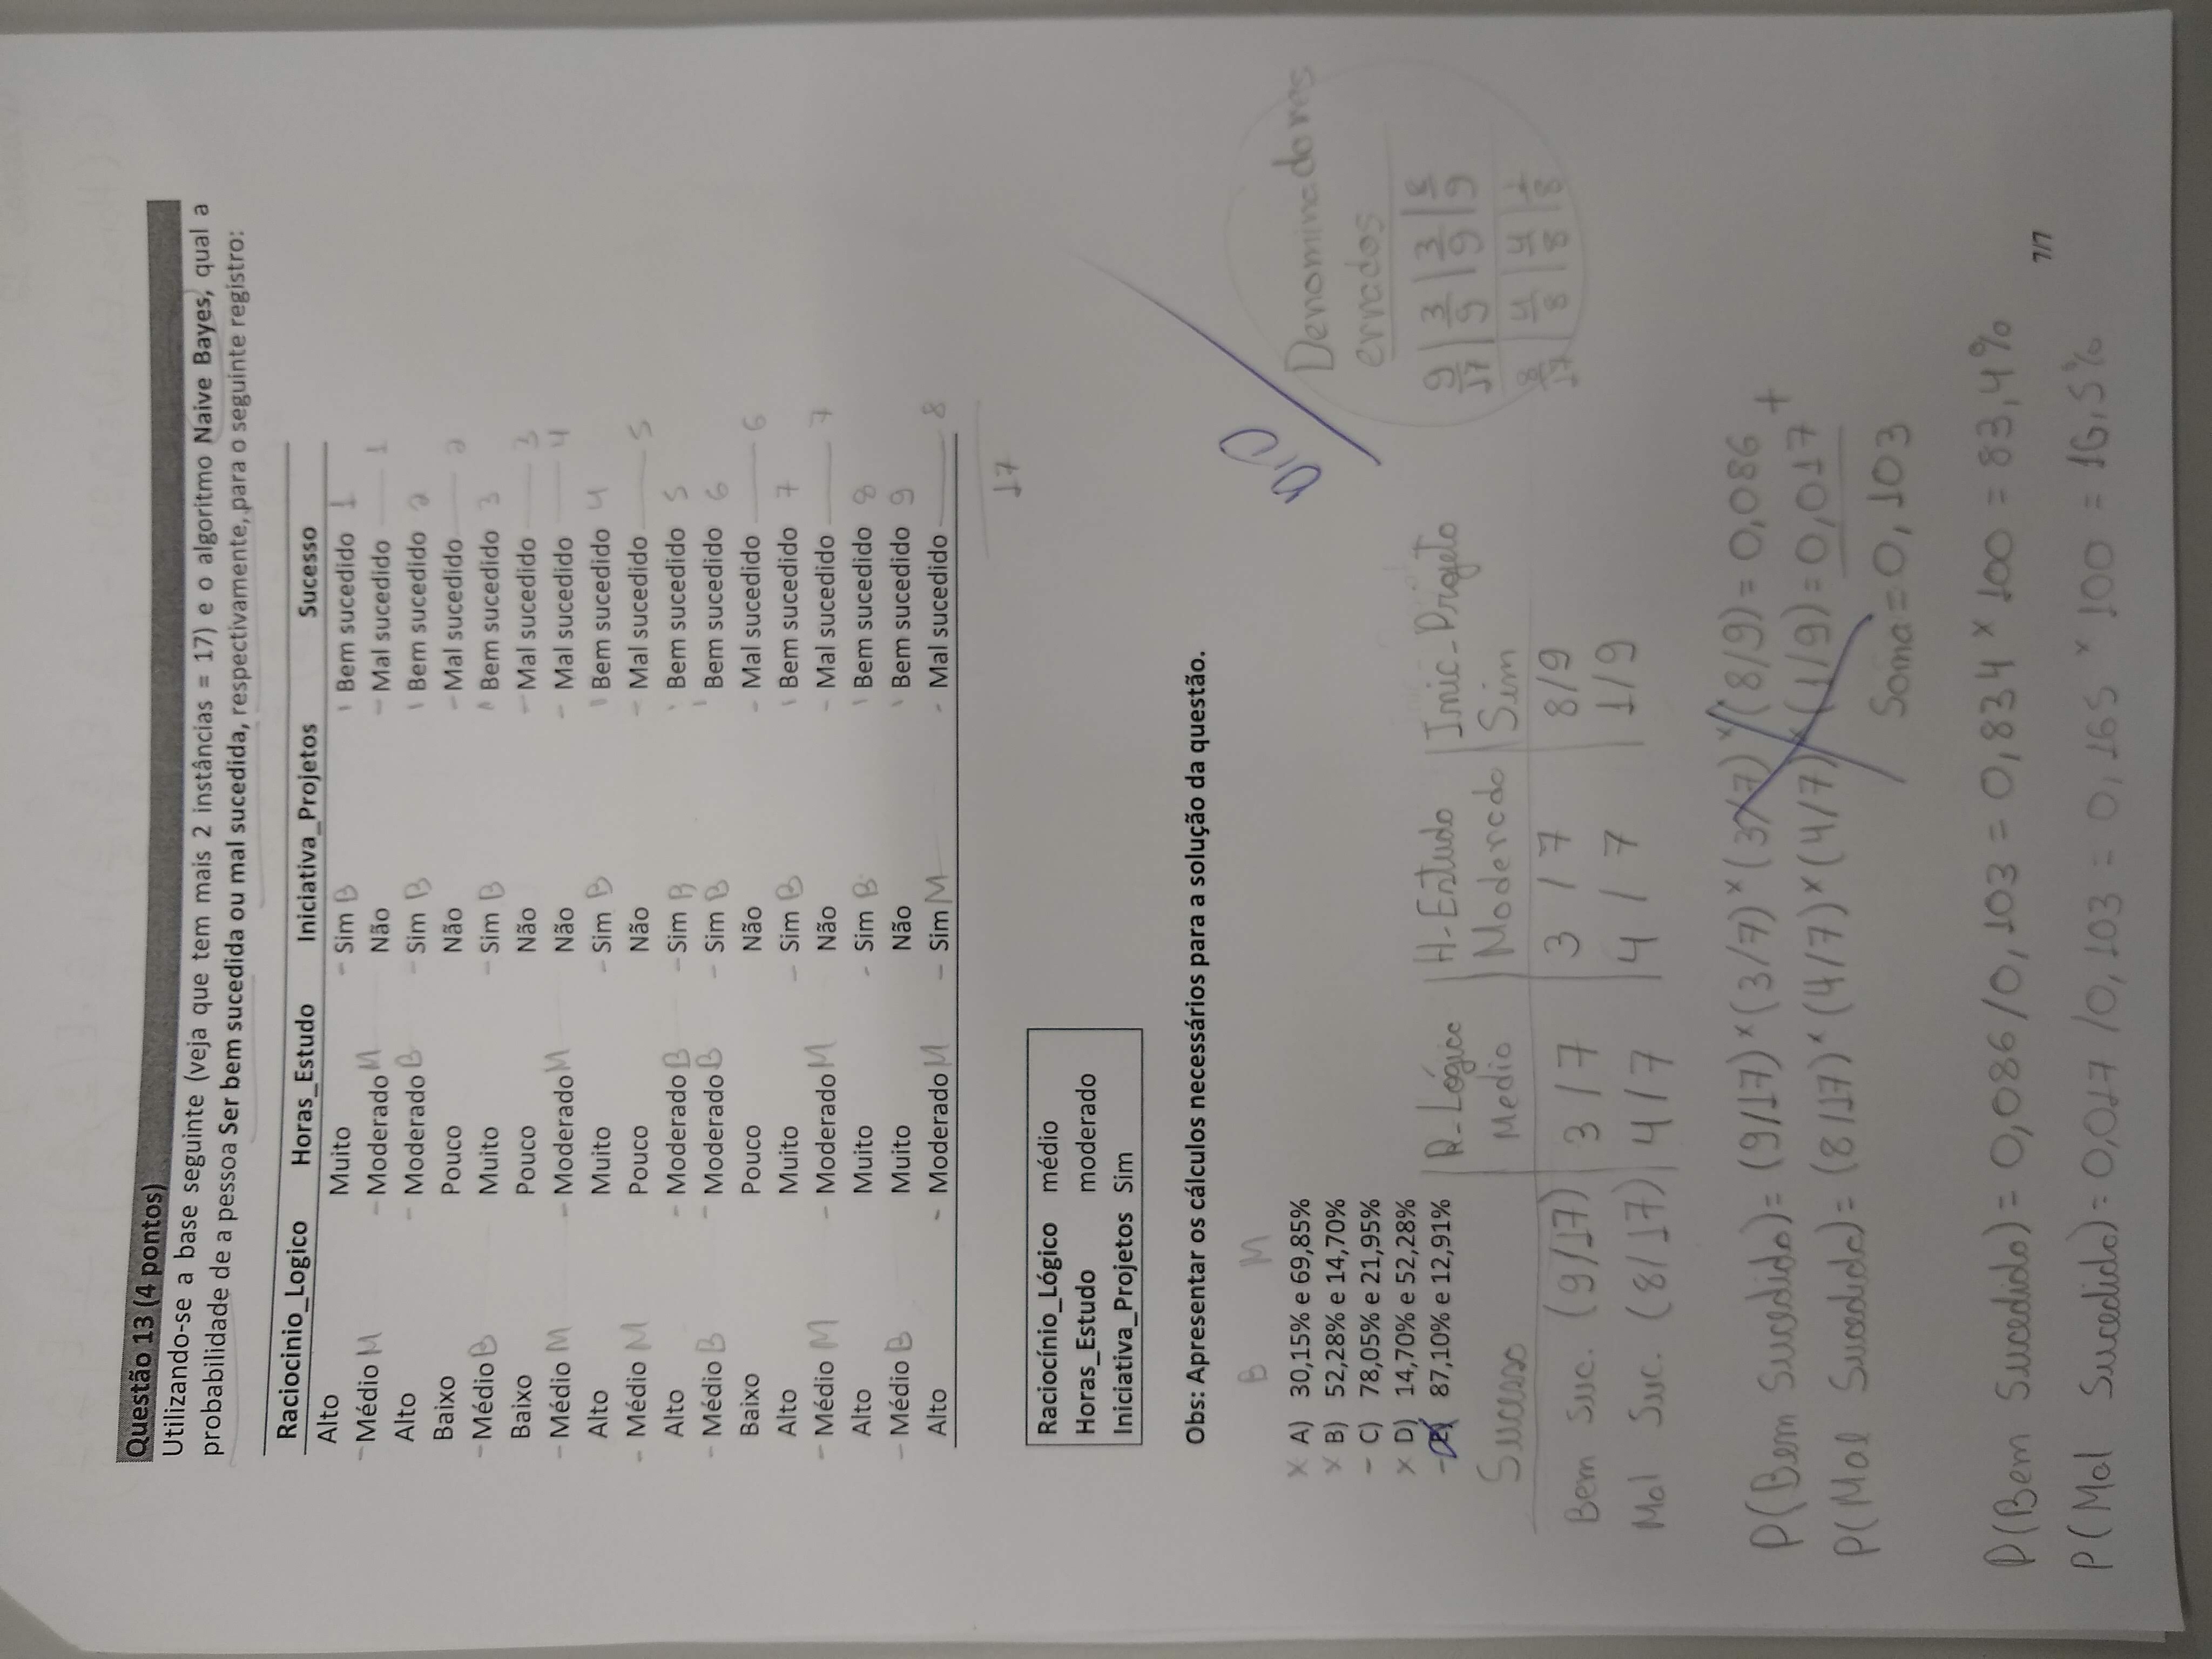 Questão 13 (4 pontos)
Utilizando-se a base seguinte (veja que tem mais 2 instâncias = 17) e o algoritmo Naive Bayes, qual a
probabilidade de a pessoa Ser bem sucedida ou mal sucedida, respectivamente, para o seguinte registro:
Raciocinio_Logico Horas_Estudo Iniciativa_Projetos Sucesso
Alto Muito - Sim B Bem sucedido 1
- Médio M - Moderado M Não - Mal sucedido 1
Alto - Moderado B - Sim B Bem sucedido 2
Baixo Pouco Não - Mal sucedido 2
- Médio B Muito - Sim B Bem sucedido 3
Baixo Pouco Não - Mal sucedido 3
- Médio M - Moderado M Não - Mal sucedido 4
Alto Muito - Sim B Bem sucedido 4
- Médio M Pouco Não - Mal sucedido 5
Alto - Moderado B - Sim B Bem sucedido 5
- Médio B - Moderado B - Sim B Bem sucedido 6
Baixo Pouco Não - Mal sucedido 6
Alto Muito - Sim B Bem sucedido 7
- Médio M - Moderado M Não - Mal sucedido 7
Alto Muito - Sim B Bem sucedido 8
- Médio B Muito Não Bem sucedido 9
Alto - Moderado M - Sim M - Mal sucedido 8
17
Raciocínio_Lógico médio
Horas_Estudo moderado
Iniciativa_Projetos Sim
Obs: Apresentar os cálculos necessários para a solução da questão.
B M
x A) 30,15% e 69,85%
x B) 52,28% e 14,70%
- C) 78,05% e 21,95%
x D) 14,70% e 52,28%
- E) 87,10% e 12,91%
0,0
Denominadores
errados
9/17 3/9 3/9 8/9
8/17 4/8 4/8 1/8
R-Lógico H-Estudo Inic-Projeto
Sucesso Medio Moderado Sim
Bem Suc. (9/17) 3/7 3/7 8/9
Mal Suc. (8/17) 4/7 4/7 1/9
P(Bem Sucedido)= (9/17) x (3/7) x (3/7) x (8/9) = 0,086 +
P(Mal Sucedido)= (8/17) x (4/7) x (4/7) x (1/9) = 0,017
Soma = 0,103
P(Bem Sucedido)= 0,086/0,103 = 0,834 x 100 = 83,4%
7/7
P(Mal Sucedido)= 0,017/0,103 = 0,165 x 100 = 16,5%